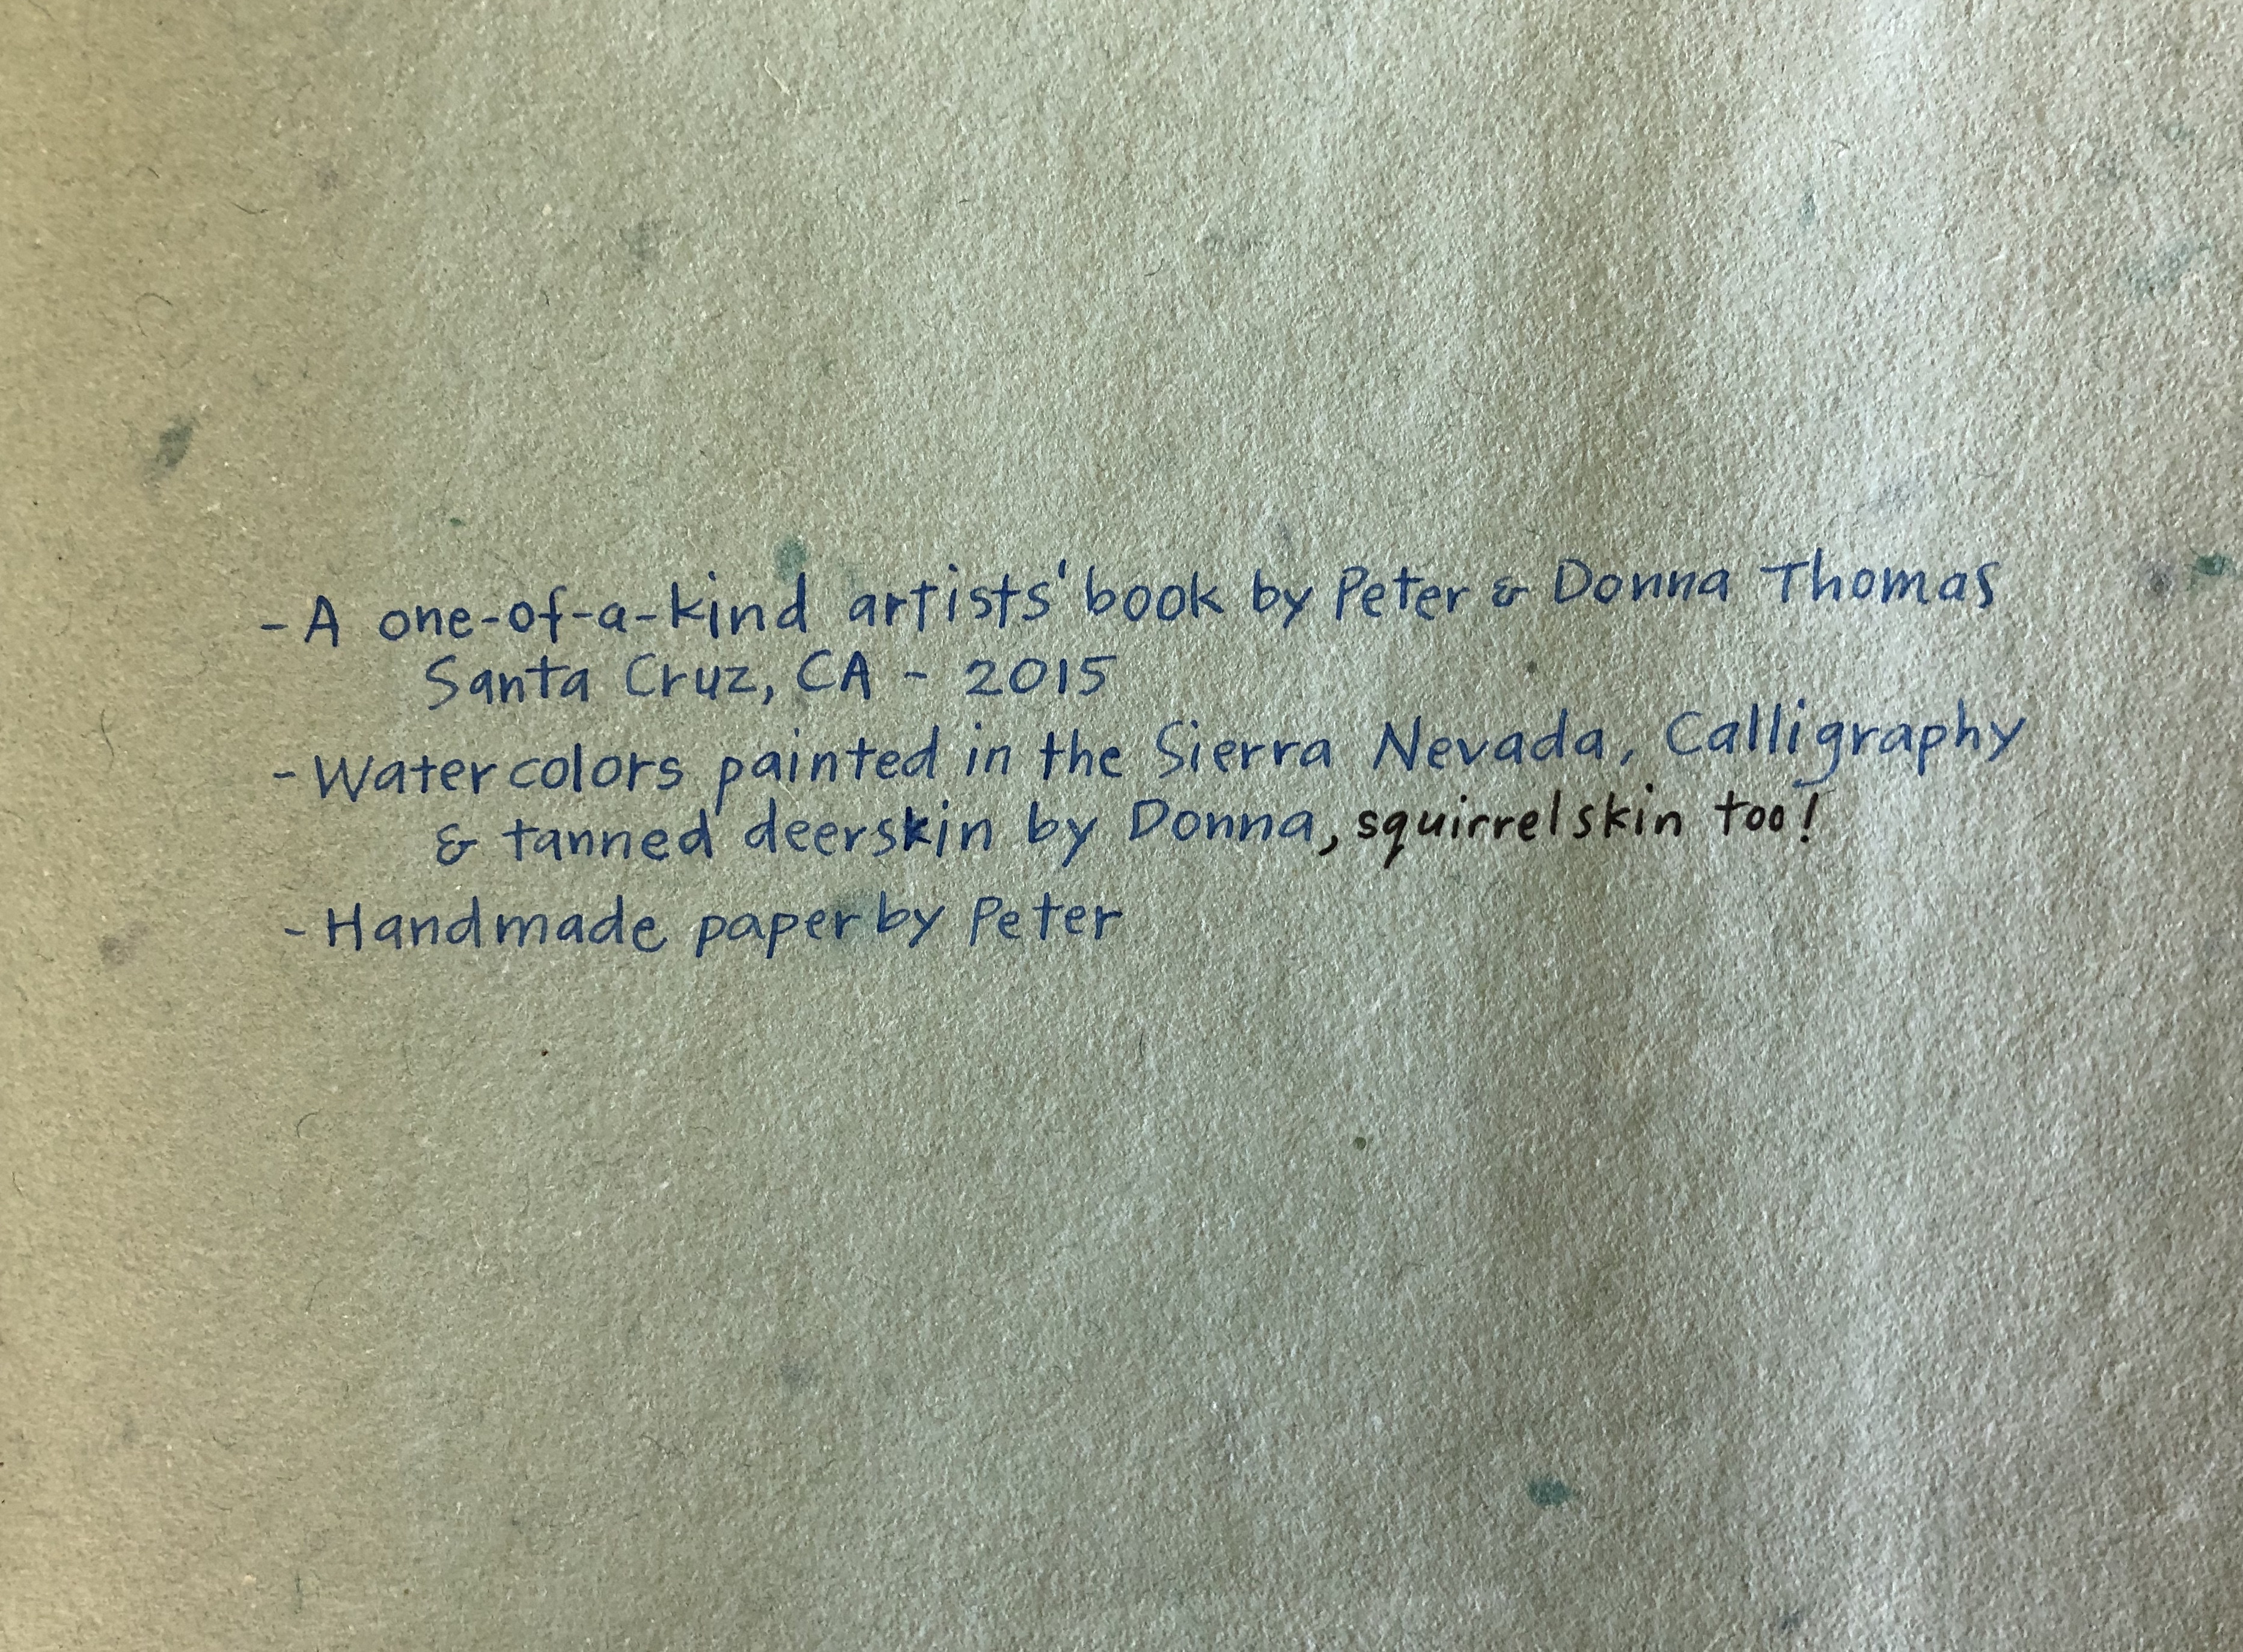 - A one-of-a-kind artists' book by Peter & Donna Thomas
Santa Cruz, CA - 2015
- Watercolors painted in the Sierra Nevada, Calligraphy
& tanned deerskin by Donna, squirrelskin too!
- Handmade paper by Peter